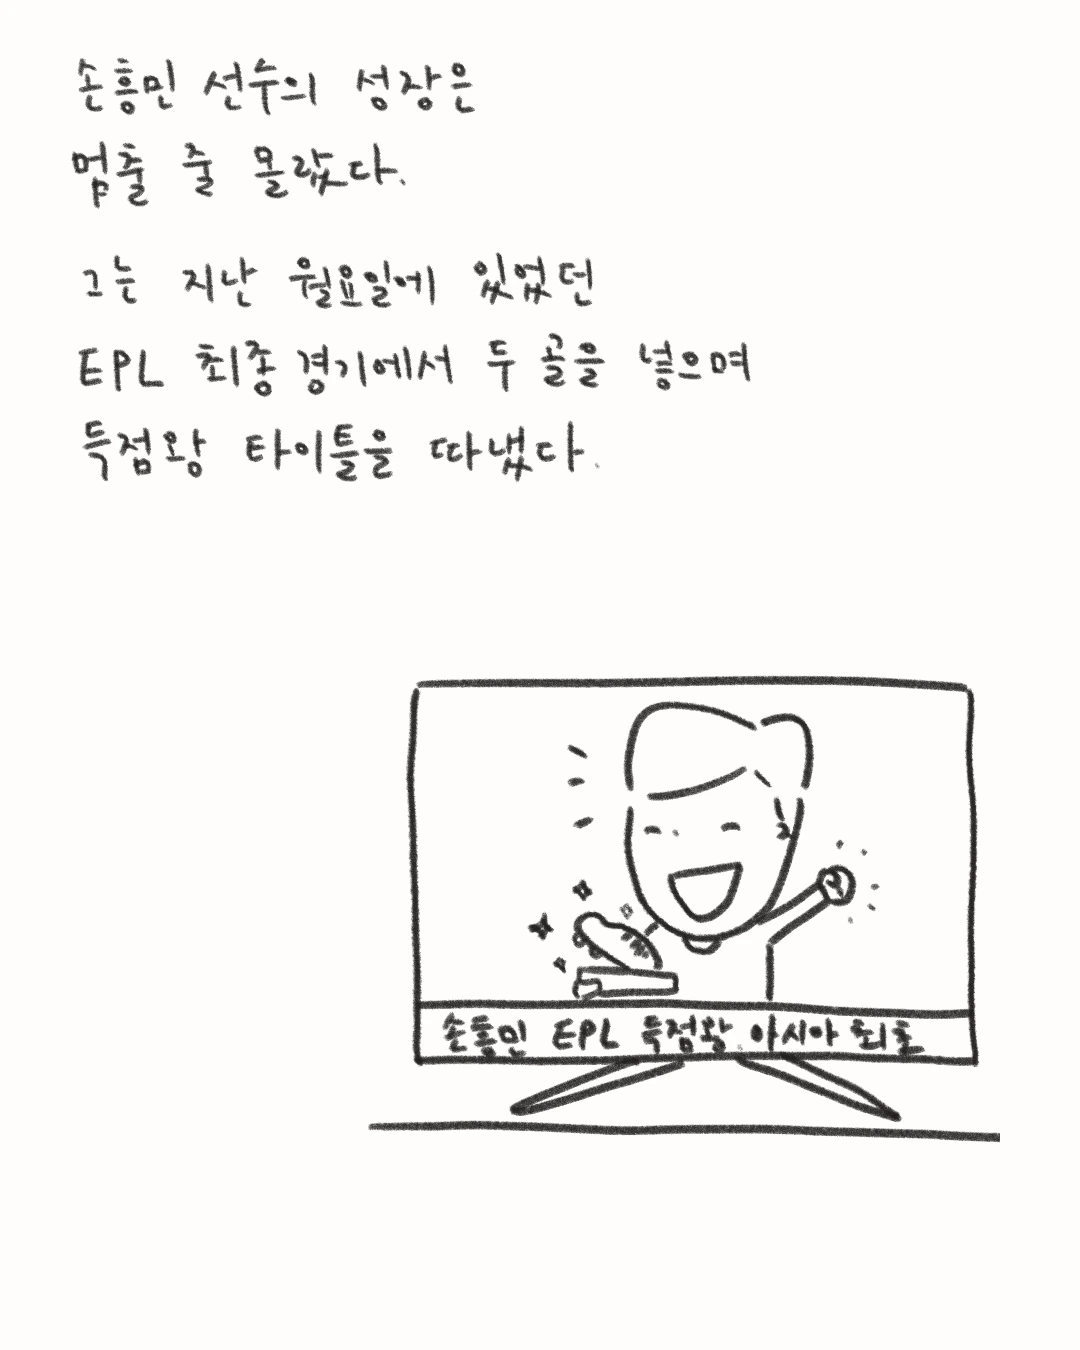 손흥민 선수의 성장은
멈출 줄 몰랐다.
그는 지난 월요일에 있었던
EPL 최종 경기에서 두 골을 넣으며
득점왕 타이틀을 따냈다.
손흥민 EPL 득점왕. 아시아 최초